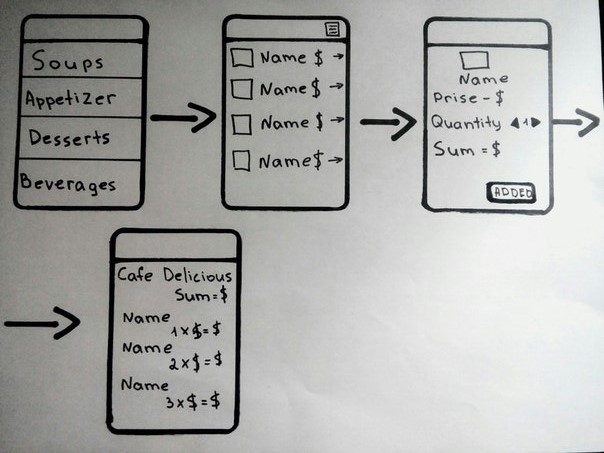 Soups
Appetizer
Desserts
Beverages
Name $
Name $
Name $
Name $
Name
Prise - $
Quantity 1
Sum = $
ADDED
Cafe Delicious
Sum = $
Name
1 x $ = $
Name
2 x $ = $
Name
3 x $ = $